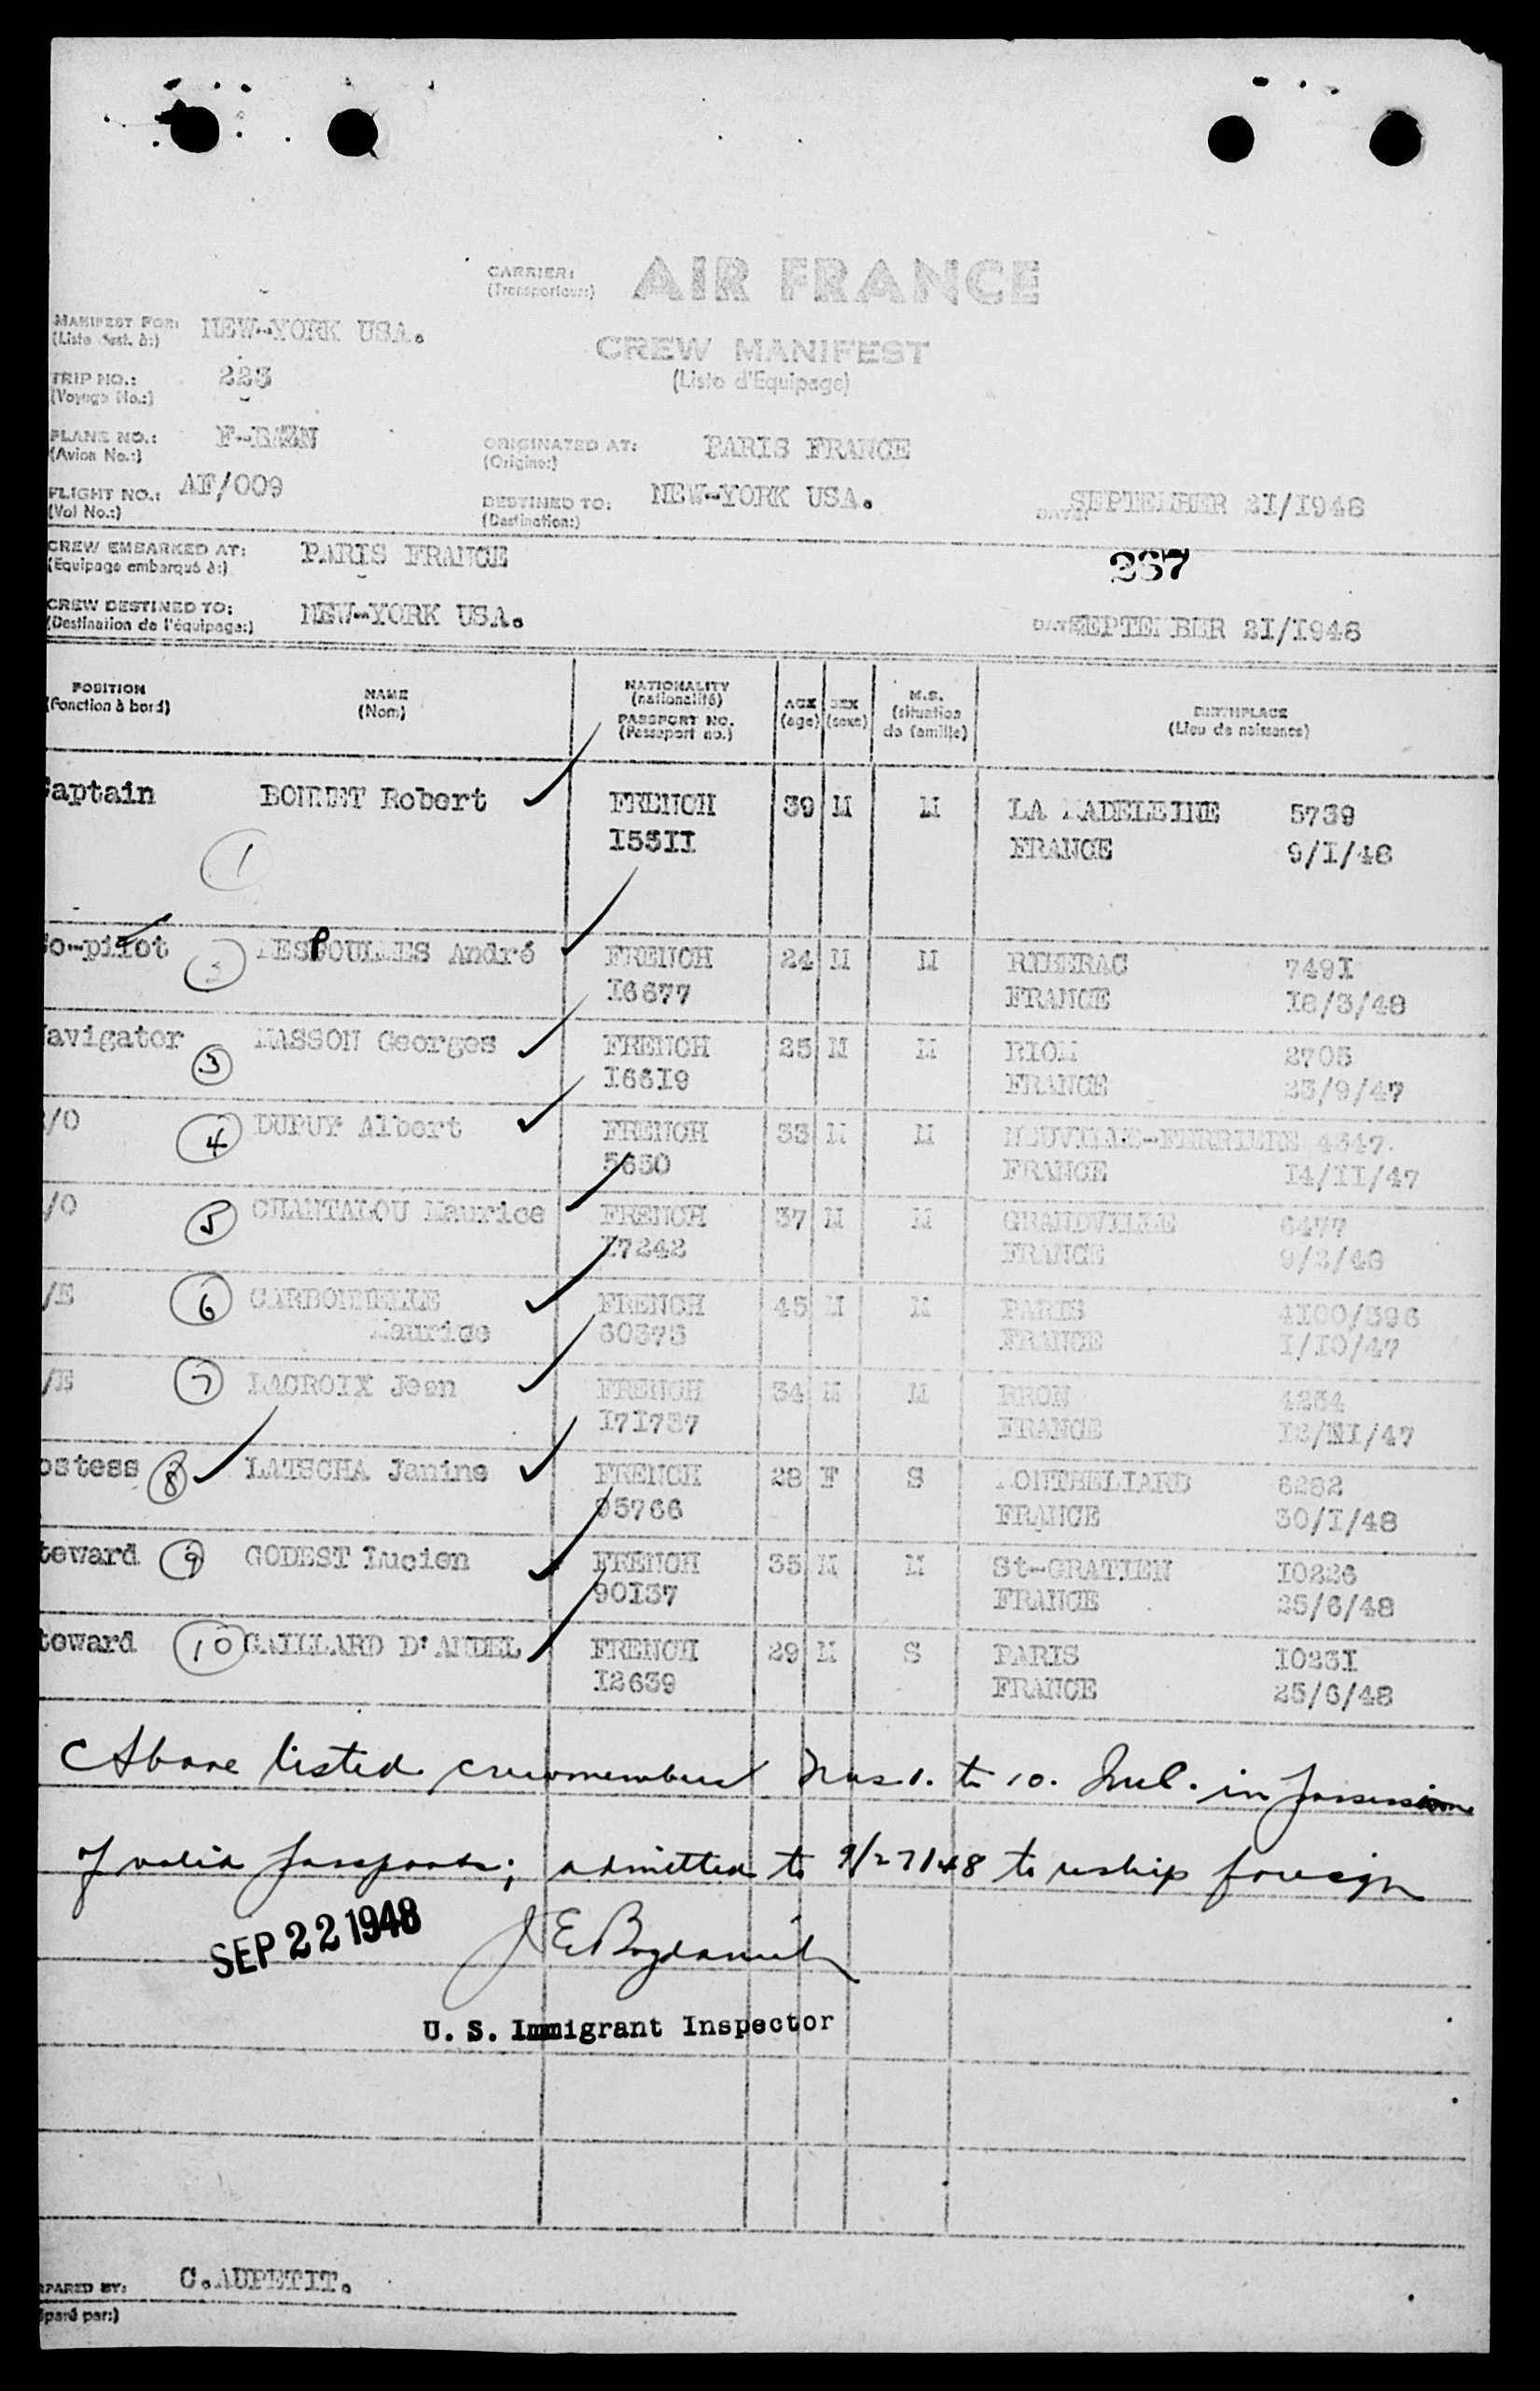 CARRIER: AIR FRANCE
(Transporteur:)
MANIFEST FOR: NEW-YORK USA.
(Liste dest. à:)
CREW MANIFEST
(Liste d'Equipage)
TRIP NO.: 223
(Voyage No.:)
PLANE NO.: F-BAZN
(Avion No.:)
ORIGINATED AT: PARIS FRANCE
(Origine:)
FLIGHT NO.: AF/009
(Vol No.:)
DESTINED TO: NEW-YORK USA.
(Destination:)
DATE: SEPTEMBER 2I/I948
CREW EMBARKED AT: PARIS FRANCE
(Equipage embarqué à:)
267
CREW DESTINED TO: NEW-YORK USA.
(Destination de l'équipage:)
DATE SEPTEMBER 2I/I948
POSITION
(Fonction à bord)
NAME
(Nom)
NATIONALITY
(nationalité)
PASSPORT NO.
(Passeport no.)
AGE
(age)
SEX
(sexe)
M.S.
(situation
de famille)
BIRTHPLACE
(Lieu de naissance)
aptain BONNET Robert FRENCH 39 M M LA MADELEINE 5739
1 I53II FRANCE 9/I/48
o-pilot ESPOULLES André FRENCH 24 M M RIBERAC 749I
I6677 FRANCE I8/3/48
avigator 3 MASSON Georges FRENCH 25 M M RIOM 2705
I66I9 FRANCE 23/9/47
/O 4 DUPUY Albert FRENCH 33 M M NEUVILLE-FERRIERE 4347.
5630 FRANCE I4/II/47
/O 5 CHANTALOU Maurice FRENCH 37 M M GRANDVILLE 6477
I7242 FRANCE 9/2/48
/E 6 CARBONNELLE FRENCH 45 M M PARIS 4I00/396
Maurice 60373 FRANCE I/I0/47
/E 7 LACROIX Jean FRENCH 34 M M BRON 4234
I7I737 FRANCE /47
ostess 8 LATSCHA Janine FRENCH 28 F S MONTBELIARD 6282
95766 FRANCE 30/I/48
teward 9 GODEST Lucien FRENCH 35 M M St-GRATIEN I0226
90I37 FRANCE 25/6/48
teward 10 GAILLARD D'ANDEL FRENCH 29 M S PARIS I023I
I2639 FRANCE 25/6/48
Above listed crewmembers Nos 1. to 10. Incl. in possession
of valid passports; admitted to 9/27/48 to reship foreign
SEP 22 1948
U. S. Immigrant Inspector
PARED BY: C.AUPETIT.
éparé par:)